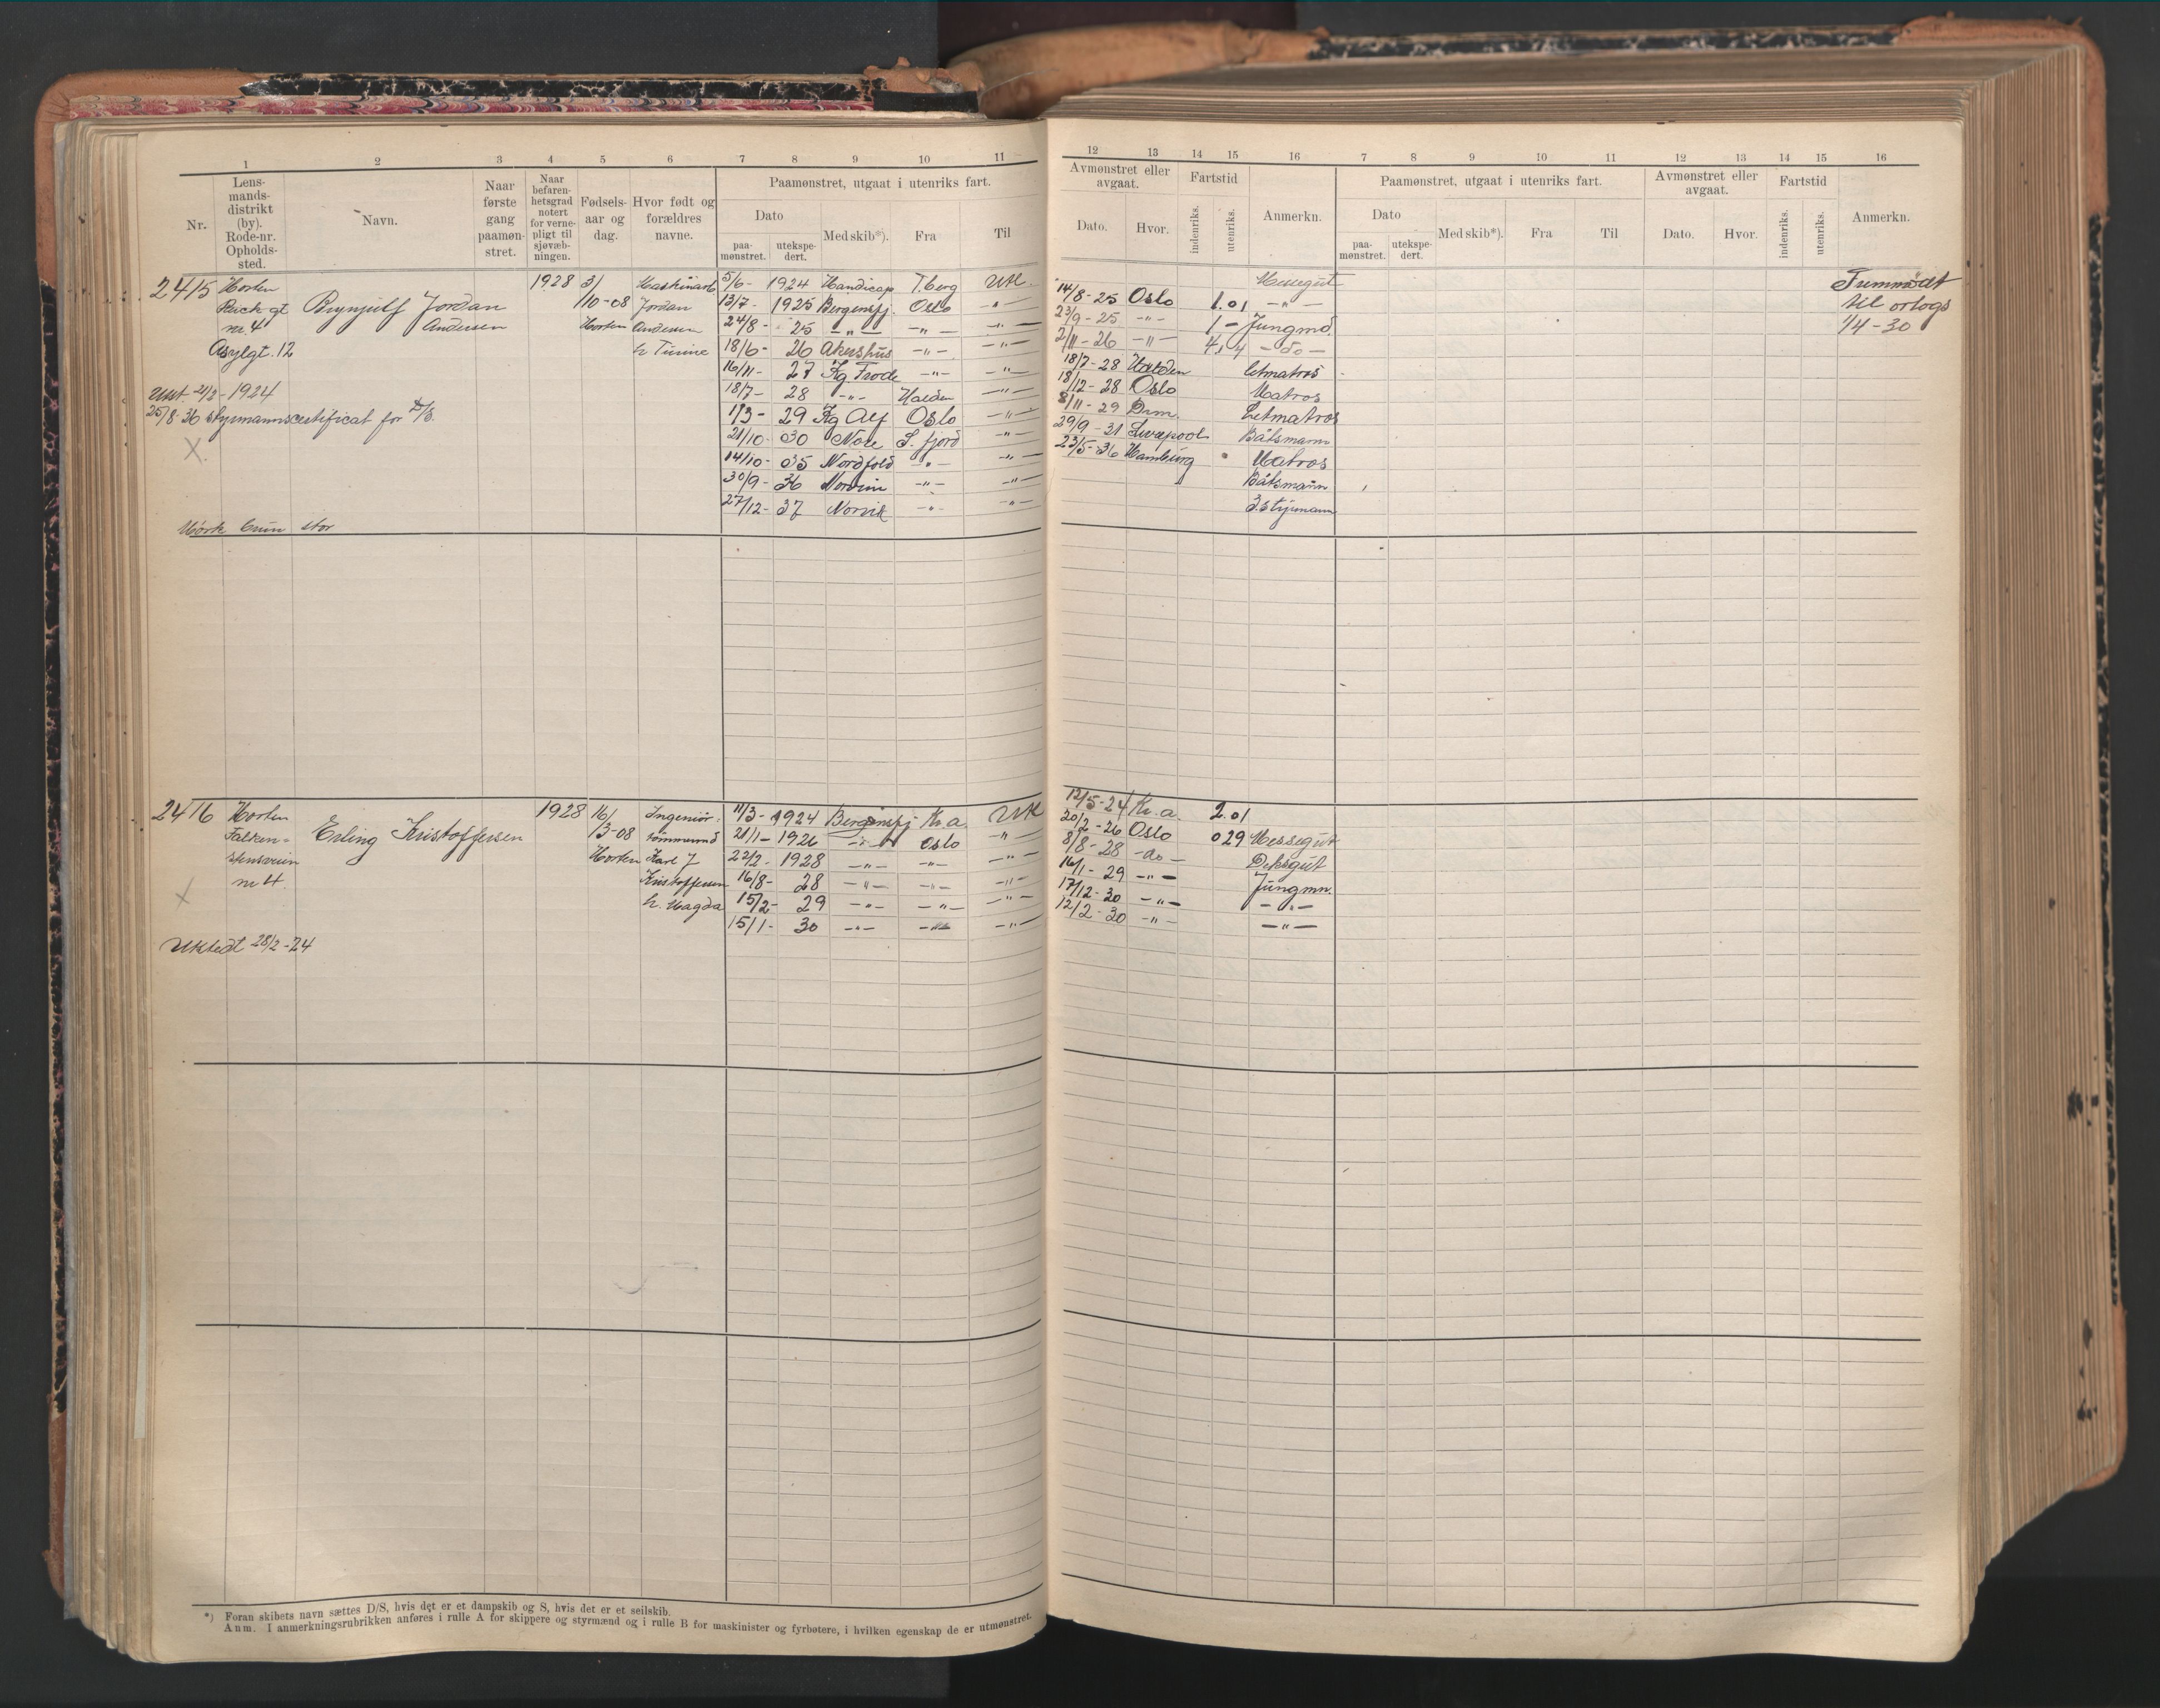 1 2 3 4 5 6 7 8 9 10 11 12 13 14 15 16 7 8 9 10 11 12 13 14 15 16
Nr.
Lens-
mands-
distrikt
(by).
Rode-nr.
Opholds-
sted.
Navn.
Naar
første
gang
paamøn-
stret.
Naar
befaren-
hetsgrad
notert
for verne-
pligt til
sjøvæb-
ningen.
Fødsels-
aar og
dag.
Hvor født og
forældres
navne.
Paamønstret, utgaat i utenriks fart.
Dato
paa-
mønstret.
utekspe-
dert.
Med skib*).
Fra
Til
Avmønstret eller
avgaat.
Dato.
Hvor.
Fartstid
indenriks.
utenriks.
Anmerkn.
Paamønstret, utgaat i utenriks fart.
Dato
paa-
mønstret.
utekspe-
dert.
Med skib*).
Fra
Til
Avmønstret eller
avgaat.
Dato.
Hvor.
Fartstid
indenriks.
utenriks.
Anmerkn.
2415
Horten
Reich gt
nr. 4
Asylgt. 12
Brynjulf Jordan
Andersen
1928
3/
10-08
Horten
Maskinarb
Jordan
Andersen
h Turine
Utst. 21/2-1924
25/8-36 styrmannscertifikat for D/S.
X
Mørk brun stor
5/6- 1924 Handicap T.berg Utl.
13/7- 1925 Bergensfj. Oslo -"-
24/8- 25 -"- -"- -"-
18/6- 26 Akershus -"- -"-
16/11- 27 Kg Frode -"- -"-
18/7- 28 -"- Halden -"-
1/3- 29 Kg Alf Oslo -"-
21/10- 30 Nore S. fjord -"-
14/10- 35 Nordfold -"- -"-
30/9- 36 -"- -"-
27/12- 37 Norvik -"- -"-
Messegut
14/8-25 Oslo 1.01 -"-
23/9-25 -"- 1- Jungmd.
2/11-26 -"- 4,4 -do-
18/7-28 Halden Letmatros
18/12-28 Oslo Matros
8/11-29 Drm. Letmatros
29/9-31 Liverpool Båtsmann
23/5-36 Hamburg Matros
Båtsmann
3. styrmann
til orlogs
1/4-30
2416
Horten
Falken-
stensveien
nr 4
Erling Kristoffersen
1928
16/
3-08
Horten
Ingeniør
Karl J
Kristoffersen
h. Magda
X
Utstedt 28/2-24
11/3- 1924 Bergensfj Kr.a. Utl
21/1- 1926 -"- Oslo -"-
22/2- 1928 -"- -"- -"-
16/8- 28 -"- -"- -"-
15/2- 29 -"- -"- -"-
15/1- 30 -"- -"- -"-
12/5-24 Kr.a. 2.01
20/2-26 Oslo 029 Messegut
8/8-28 -do- Deksgut
16/1-29 -"- Jungmn.
17/12-30 -"- -"-
12/2-30 -"- -"-
*) Foran skibets navn sættes D/S, hvis det er et dampskib og S, hvis det er et seilskib.
Anm. I anmerkningsrubrikken anføres i rulle A for skippere og styrmænd og i rulle B for maskinister og fyrbøtere, i hvilken egenskap de er utmønstret.